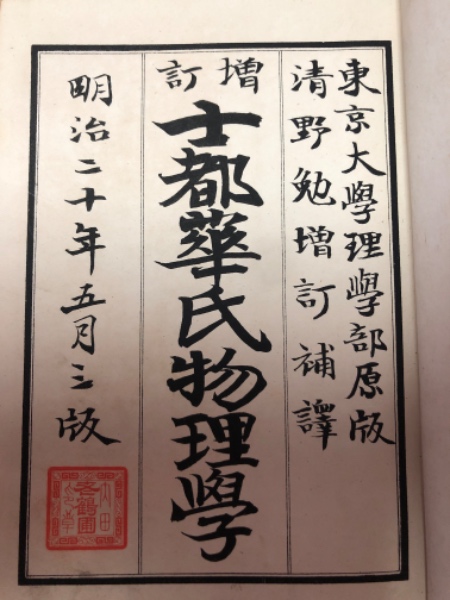 東京大學理學部原版
清野勉增訂補譯
增訂
士都華氏物理學
明治二十年五月三版